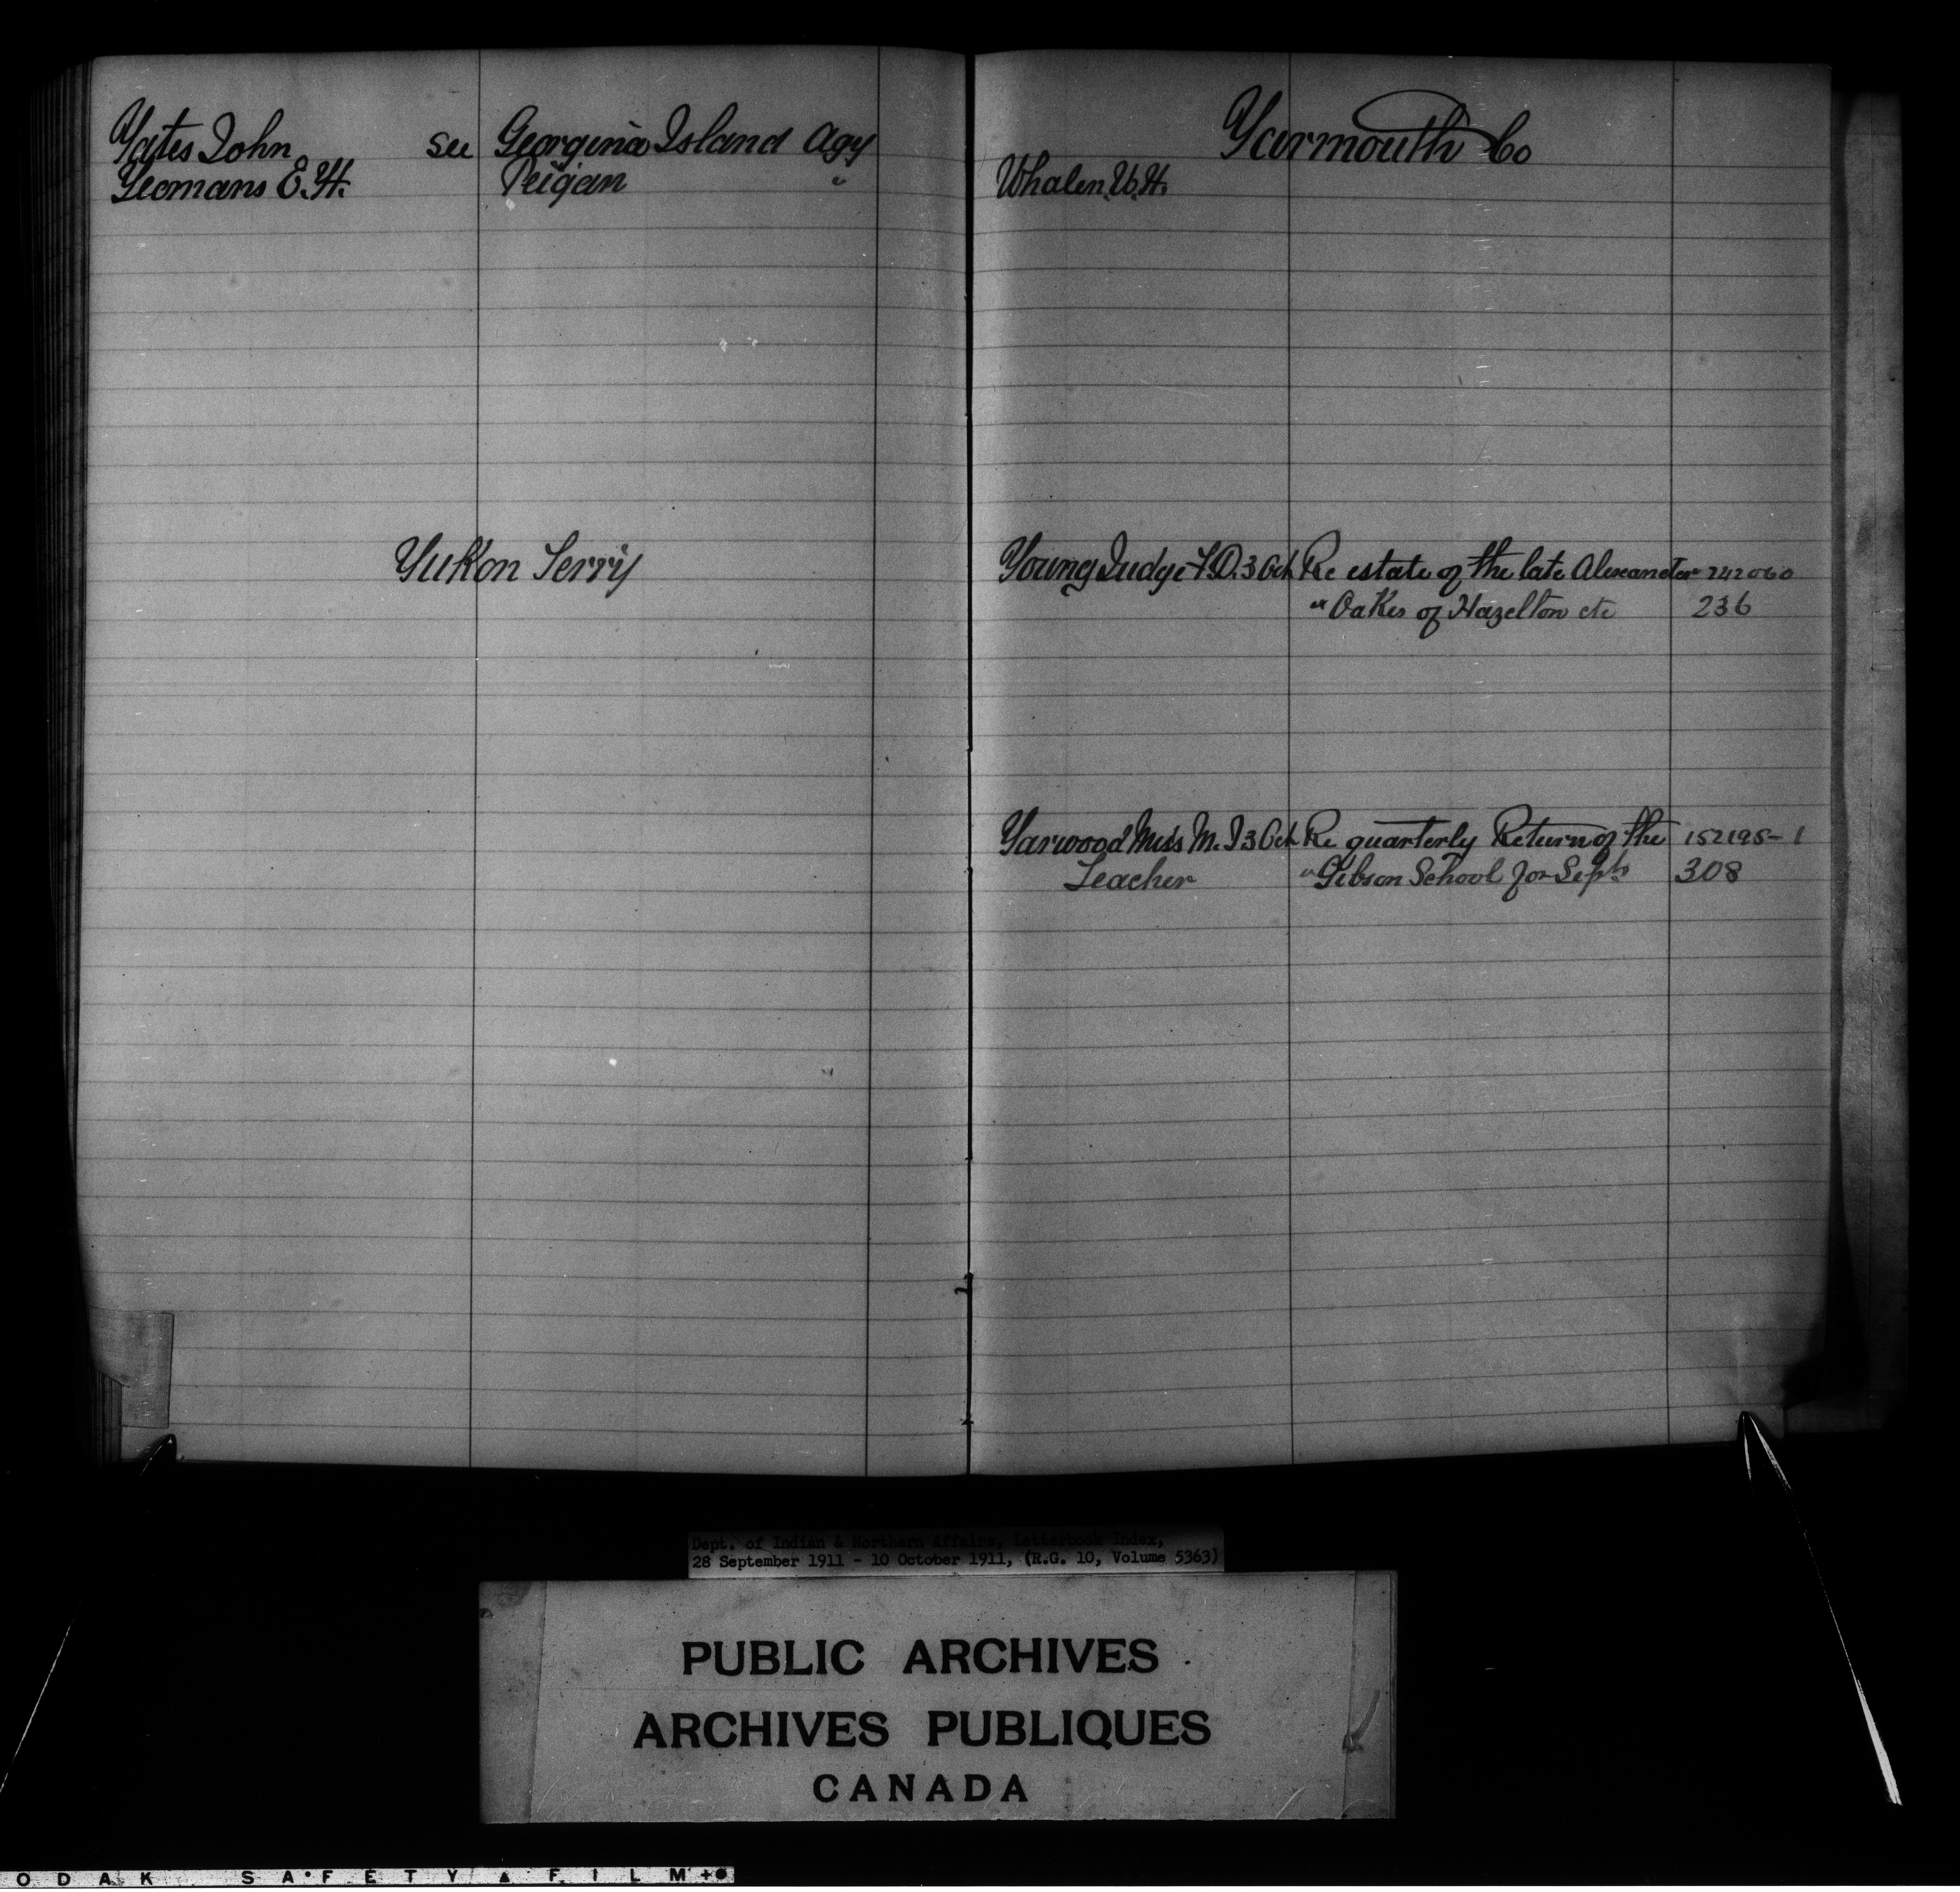 Yates John see Georgina Island Agy
Yeomans E. H. Peigan "
Yukon Terry
Yarmouth Co
Whalen W. H.
Young Judge F. D. 3 Oct Re estate of the late Alexander 242060
" Oakes of Hazelton etc 236
Yarwood Miss M. J 3 Oct Re quarterly Return of the 152195-1
Teacher " Gibson School for Septr 308
Dept. of Indian & Northern Affairs, Letterbook Index,
28 September 1911 - 10 October 1911, (R.G. 10, Volume 5363)
PUBLIC ARCHIVES
ARCHIVES PUBLIQUES
CANADA
ODAK SAFETY FILM